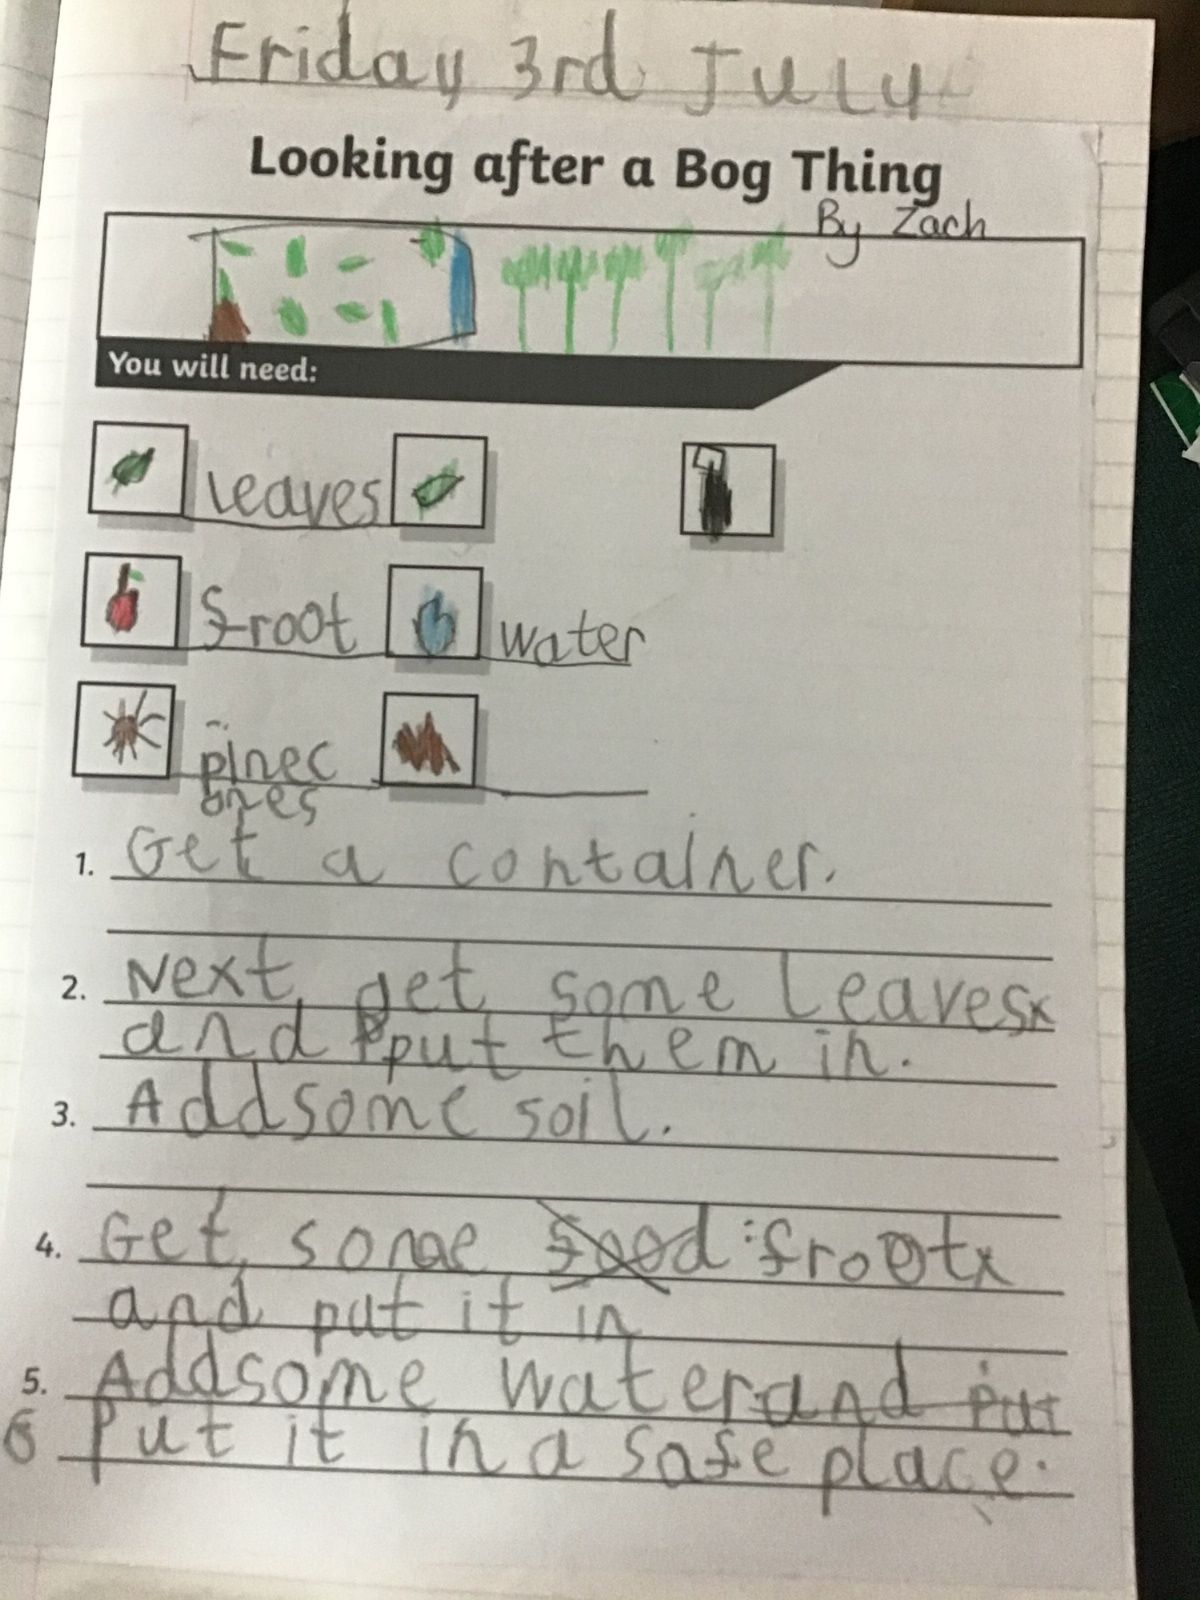 Friday 3rd July
Looking after a Bog Thing
By Zach
You will need:
leaves
froot water
pinec
ones
1. Get a container.
2. Next get some leaves
and put them in.
3. Add some soil.
4. Get some food froot
and put it in
5. Add some water and put
6 Put it in a safe place.